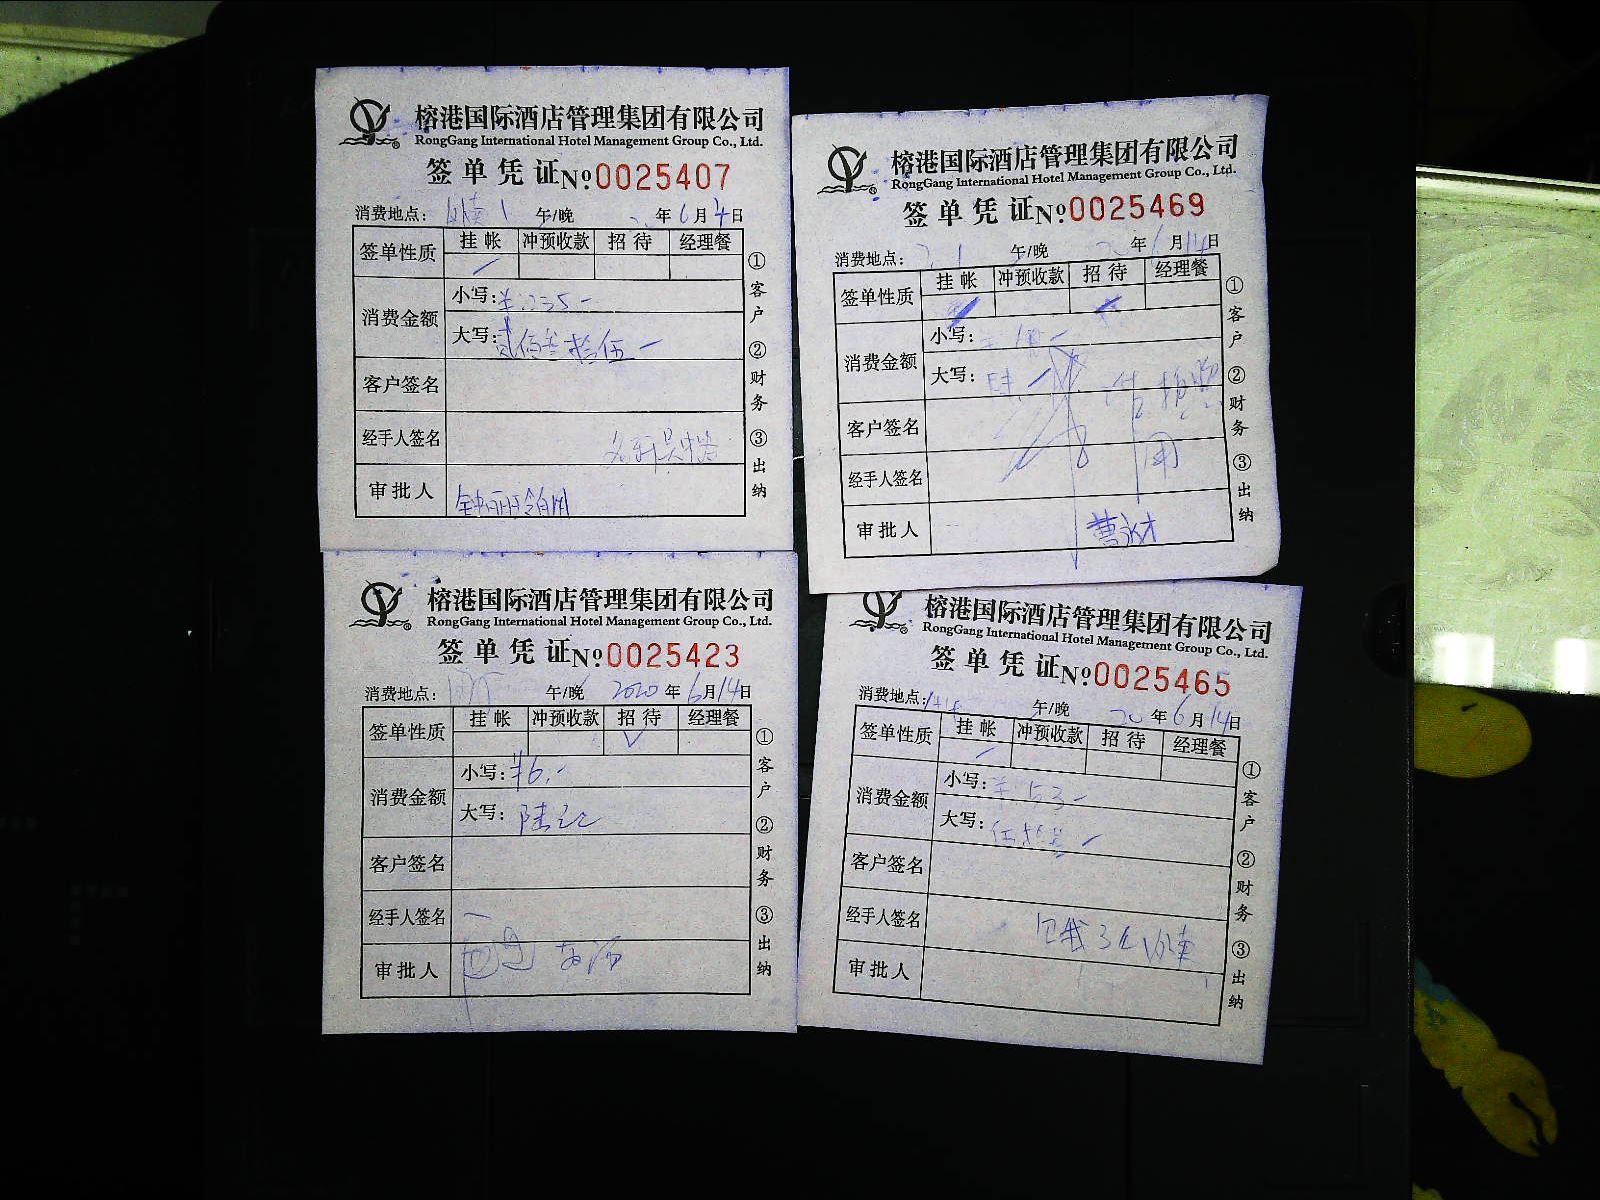 榕港国际酒店管理集团有限公司
RongGang International Hotel Management Group Co., Ltd.
签单凭证 No 0025407
消费地点： 午/晚 年6月4日
签单性质 挂帐 冲预收款 招待 经理餐
消费金额 小写：¥:235-
大写：贰佰叁拾伍-
客户签名
经手人签名
审批人
①客户 ②财务 ③出纳
榕港国际酒店管理集团有限公司
RongGang International Hotel Management Group Co., Ltd.
签单凭证 No 0025469
消费地点： 午/晚 年6月14日
签单性质 挂帐 冲预收款 招待 经理餐
消费金额 小写：
大写：
客户签名
经手人签名
审批人 曹永才
①客户 ②财务 ③出纳
榕港国际酒店管理集团有限公司
RongGang International Hotel Management Group Co., Ltd.
签单凭证 No 0025423
消费地点： 午/晚 2020年6月14日
签单性质 挂帐 冲预收款 招待 经理餐
消费金额 小写：¥6.-
大写：陆元
客户签名
经手人签名
审批人
①客户 ②财务 ③出纳
榕港国际酒店管理集团有限公司
RongGang International Hotel Management Group Co., Ltd.
签单凭证 No 0025465
消费地点： 午/晚 20年6月14日
签单性质 挂帐 冲预收款 招待 经理餐
消费金额 小写：¥:53-
大写：伍拾叁-
客户签名
经手人签名
审批人
①客户 ②财务 ③出纳